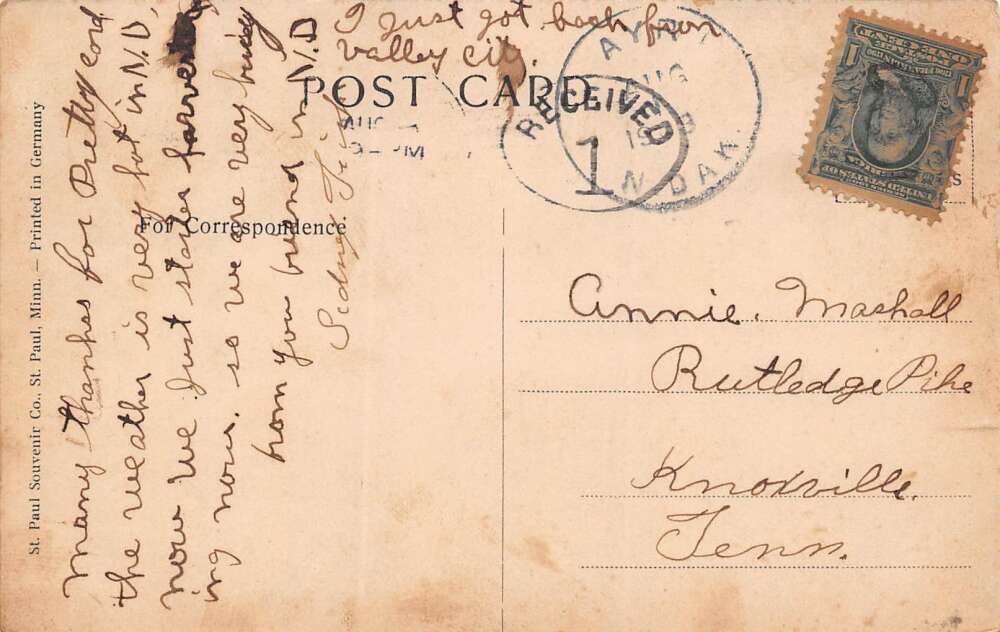 I Just got back from
valley city.
POST CARD
AUG
PM
RECEIVED
1
AUG
N. DAK.
For Correspondence
many thankes for Pretty card
the weather is very hot in N.D,
now we Just stared harvest
ing now. so we are very busy
from you friend in N.D
Sidney
Annie. Mashall
Rutledge Pike
Knoxville,
Tenn.
St. Paul Souvenir Co., St. Paul, Minn. — Printed in Germany